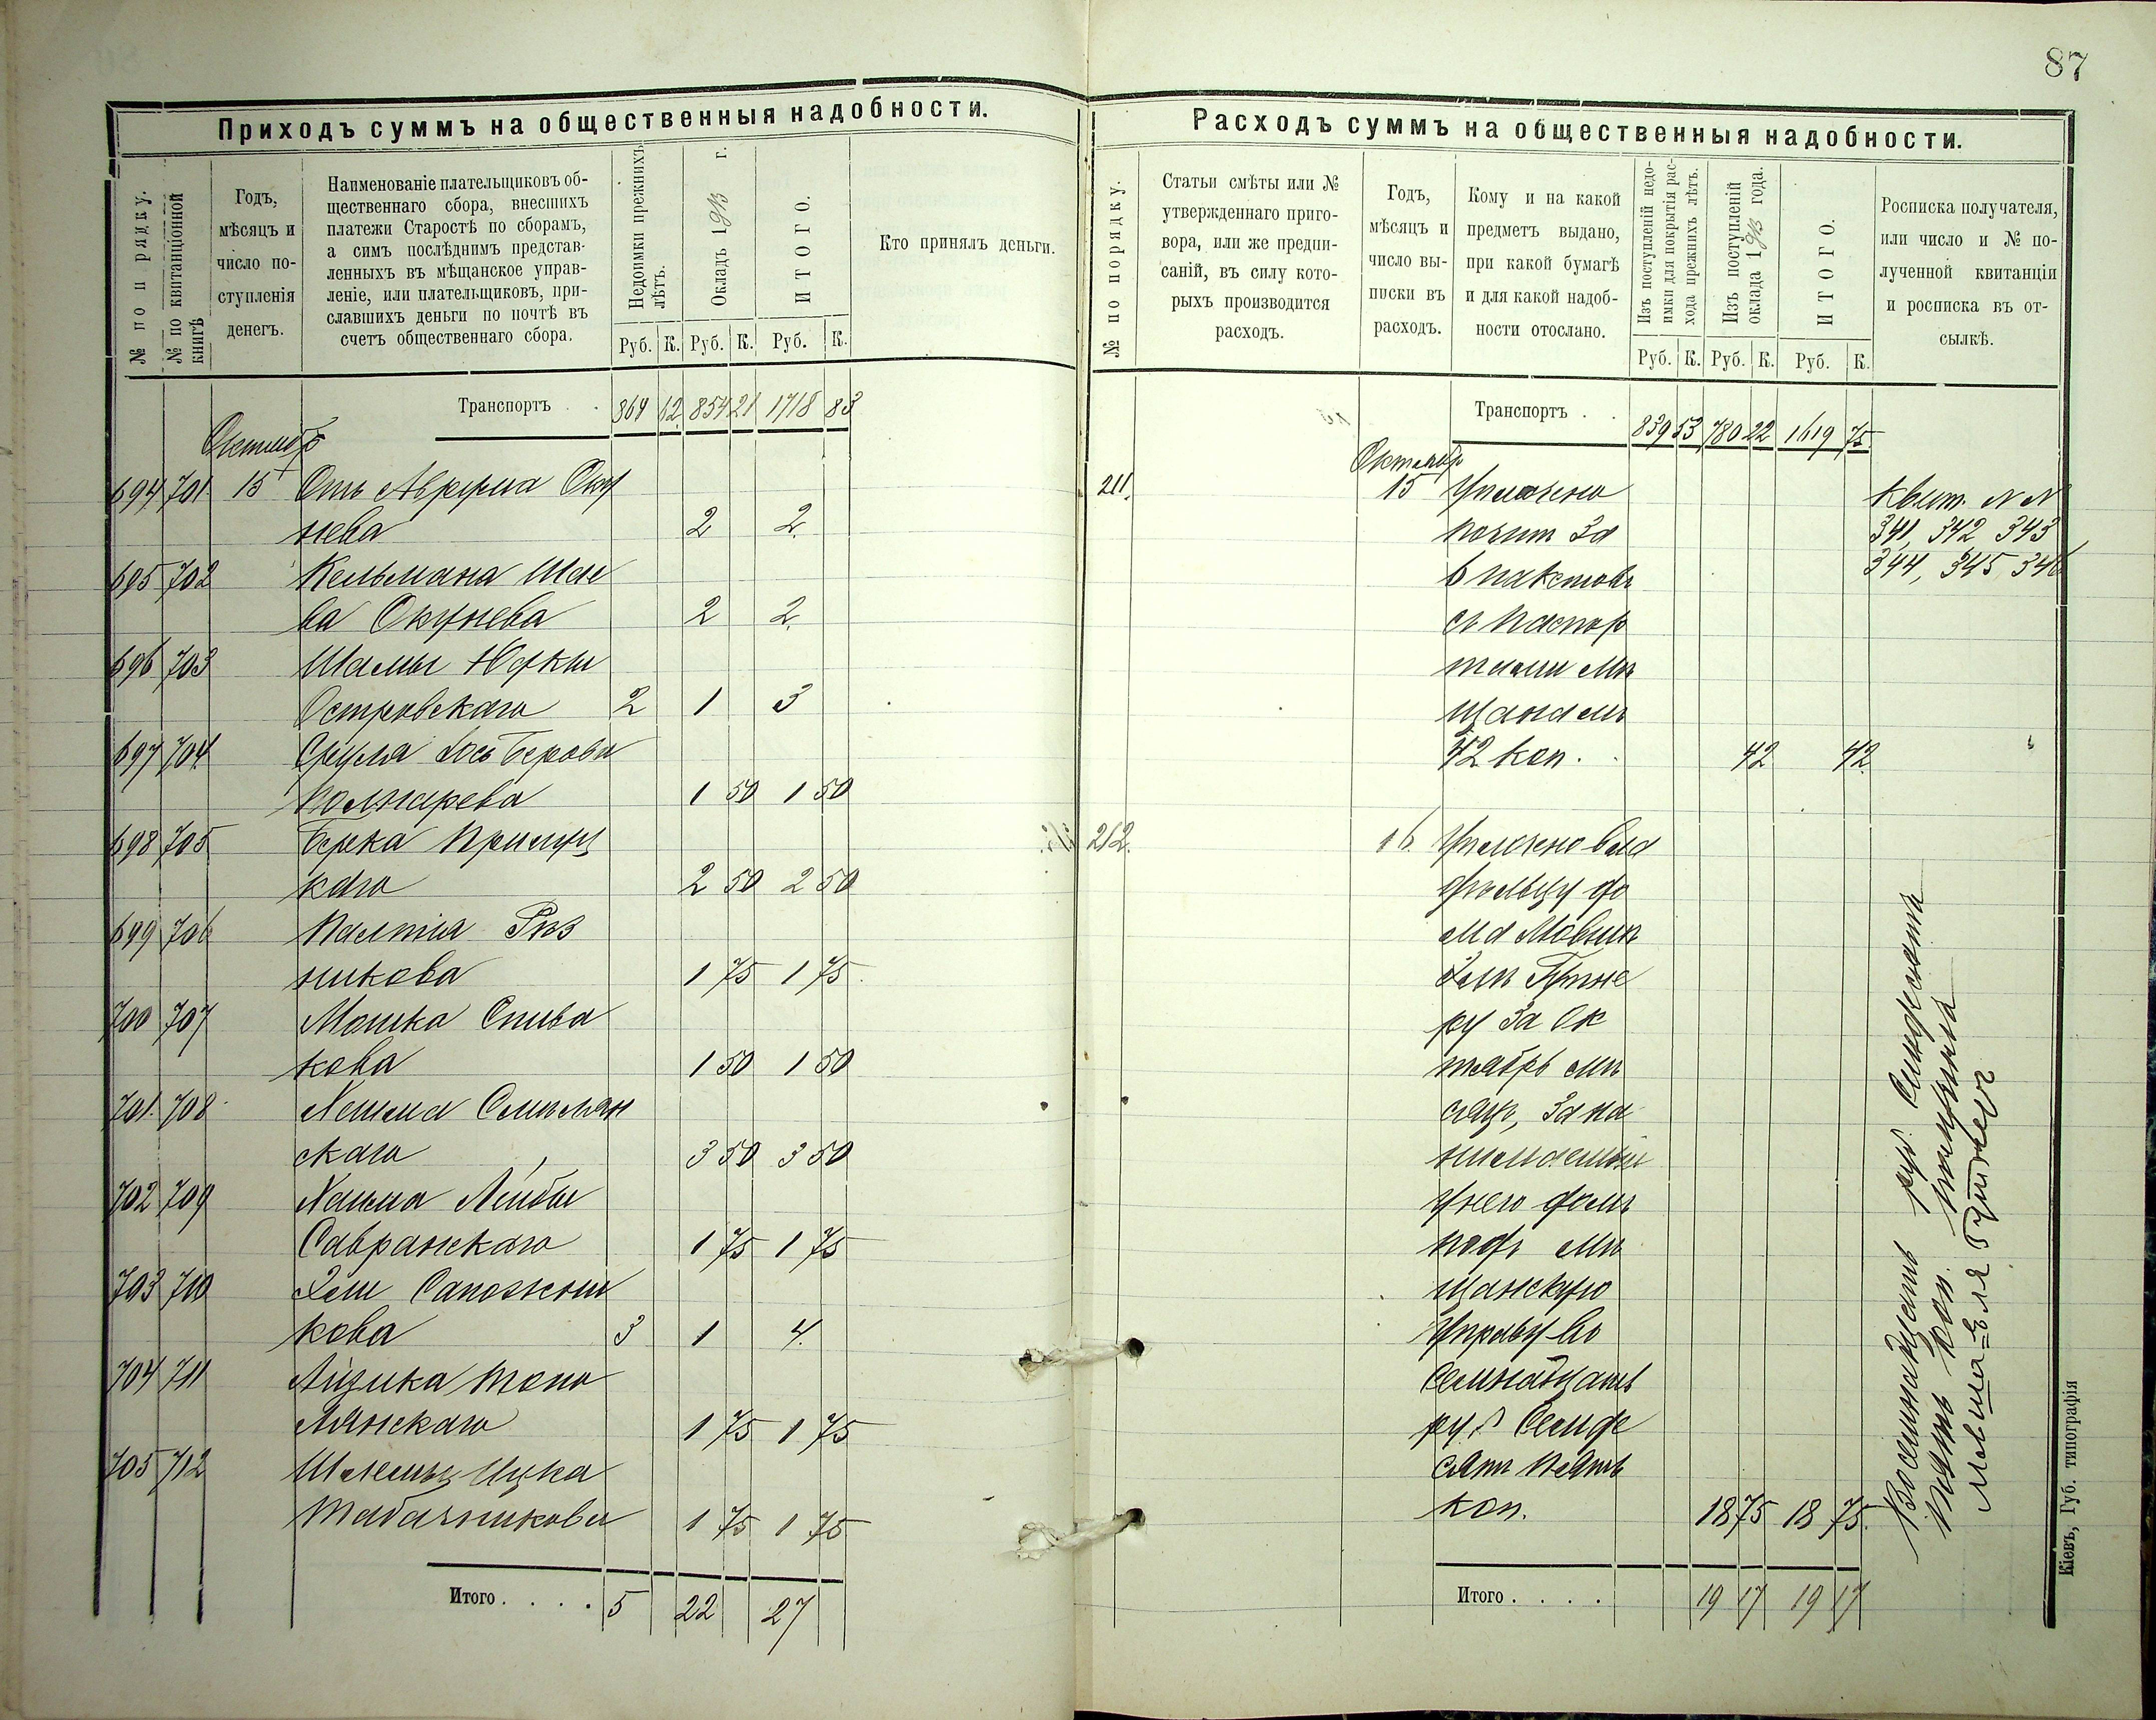 87
Приходъ суммъ на общественныя надобности.
№ по порядку.
№ по квитанціонной книгѣ
Годъ,
мѣсяцъ и
число по-
ступленія
денегъ.
Наименованіе плательщиковъ об-
щественнаго сбора, внесшихъ
платежи Старостѣ по сборамъ,
а симъ послѣднимъ представ-
ленныхъ въ мѣщанское управ-
леніе, или плательщиковъ, при-
славшихъ деньги по почтѣ въ
счетъ общественнаго сбора.
Недоимки прежнихъ
лѣтъ.
Окладъ 1913 г.
ИТОГО.
Кто принялъ деньги.
Руб. К. Руб. К. Руб. К.
Транспортъ . . 864 62 854 21 1718 83
Октября
694 701 15 Отъ Окy
нева 2 2
695 702 Кельмана Шае
ва Окунева 2 2
696 703 Шамы
Островскаго 2 1 3
697 704 Сруля Берова
1 50 1 50
698 705 Берка Прилуц
каго 2 50 2 50
699 706 Рѣз
никова 1 75 1 75
700 707 Мошка Спива
кова 1 50 1 50
701 708 Смилян
скаго 3 50 3 50
702 709 Хаима Лейбы
Савранскаго 1 75 1 75
703 710 Сапожни
кова 3 1 4
704 711 Айзика Топи
лянскаго 1 75 1 75
705 712 Ицка
Табачникова 1 75 1 75
Итого . . . . 5 22 27
Расходъ суммъ на общественныя надобности.
№ по порядку.
Статьи смѣты или №
утвержденнаго приго-
вора, или же предпи-
саній, въ силу кото-
рыхъ производится
расходъ.
Годъ,
мѣсяцъ и
число вы-
писки въ
расходъ.
Кому и на какой
предметъ выдано,
при какой бумагѣ
и для какой надоб-
ности отослано.
Изъ поступленій недо-
имки для покрытія рас-
хода прежнихъ лѣтъ.
Изъ поступленій
оклада 1913 года.
ИТОГО.
Росписка получателя,
или число и № по-
лученной квитанціи
и росписка въ от-
сылкѣ.
Руб. К. Руб. К. Руб. К.
Транспортъ . . 839 53 780 22 1619 75
Октября
211. 15 Уплочено
почт за
6 пакетовъ
съ паспор
тами мѣ
щанамъ
42 коп. 42 42
Квит. N N
341, 342 343
344, 345 346
212. 16. Уплочено вла
дѣльцу до
ма Мовшѣ
Гутне
ру за Ок
тябрь мѣ
сяцъ, за на
нимаемый
у него домъ
подъ Мѣ
щанскую
Управу Во
семнадцать
руб Семде
сятъ пять
коп. 18 75 18 75
Восемнадцать руб Семдесятъ
пять коп. получилъ
Мовша Гутнеръ
Итого . . . . 19 17 19 17
Кіевъ, Губ. типографія